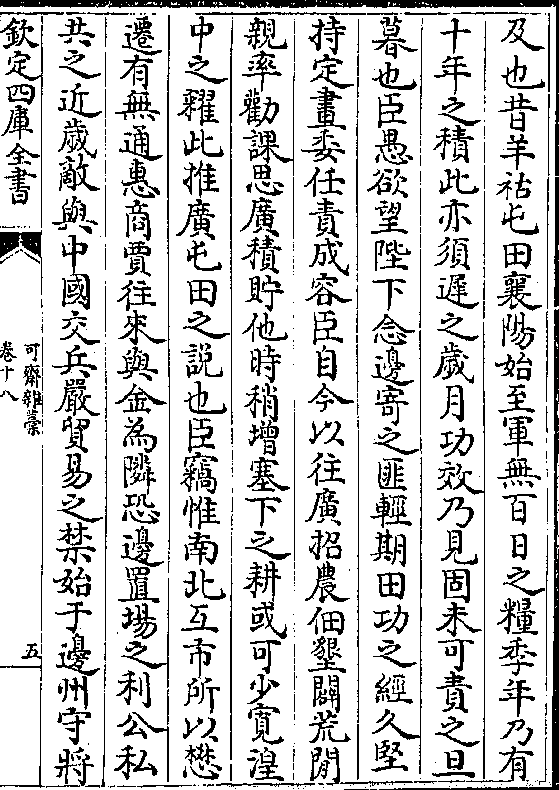 及也昔羊祜屯田襄陽始至軍無百日之糧季年乃有
十年之積此亦須遲之歲月功效乃見固未可責之旦
暮也臣愚欲望陛下念邊寄之匪輕期田功之經久堅
持定畫委任責成容臣自今以往廣招農佃墾闢荒閒
親率勸課思廣積貯他時稍增塞下之耕或可少寛湟
中之糴此推廣屯田之説也臣竊惟南北互市所以懋
遷有無通惠商賈往來與金為隣恐邊置場之利公私
共之近歲敵與中國交兵嚴貿易之禁始于邊州守將
欽定四庫全書
可齋雜藁
卷十八
五